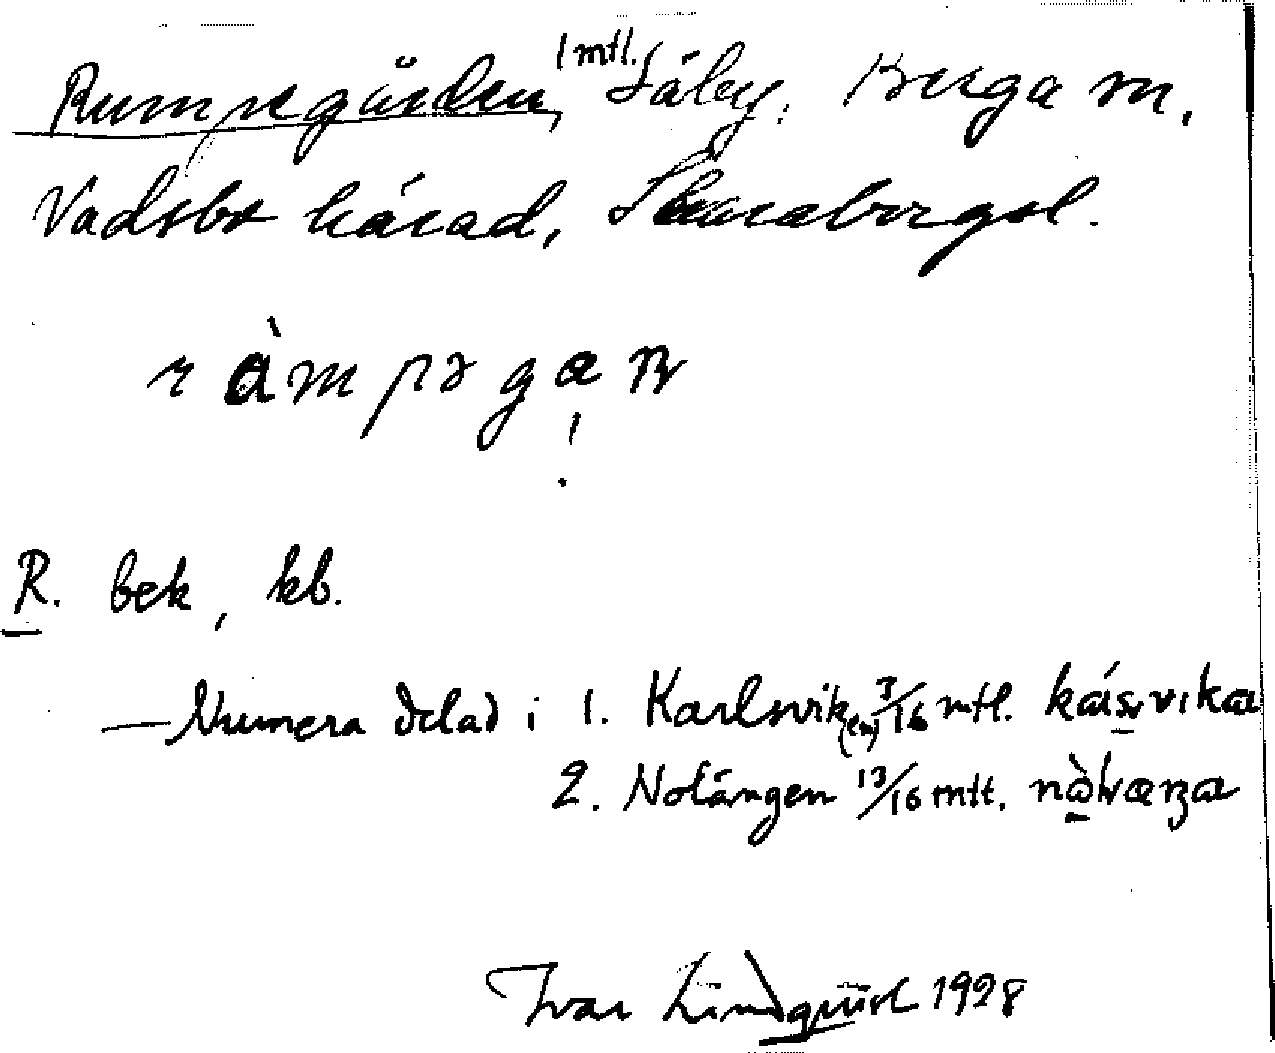 Rumpegården, 1 mtl. Säby, Berga sn.
Vadsbo härad, Skaraborgs l.
ràmpəgaɳ
!
R. bek, kb.
— Numera delad i 1. Karlsvik (en) 3/16 mtl. kásvika
2. Nolängen 13/16 mtl.
Ivar Lindquist 1928